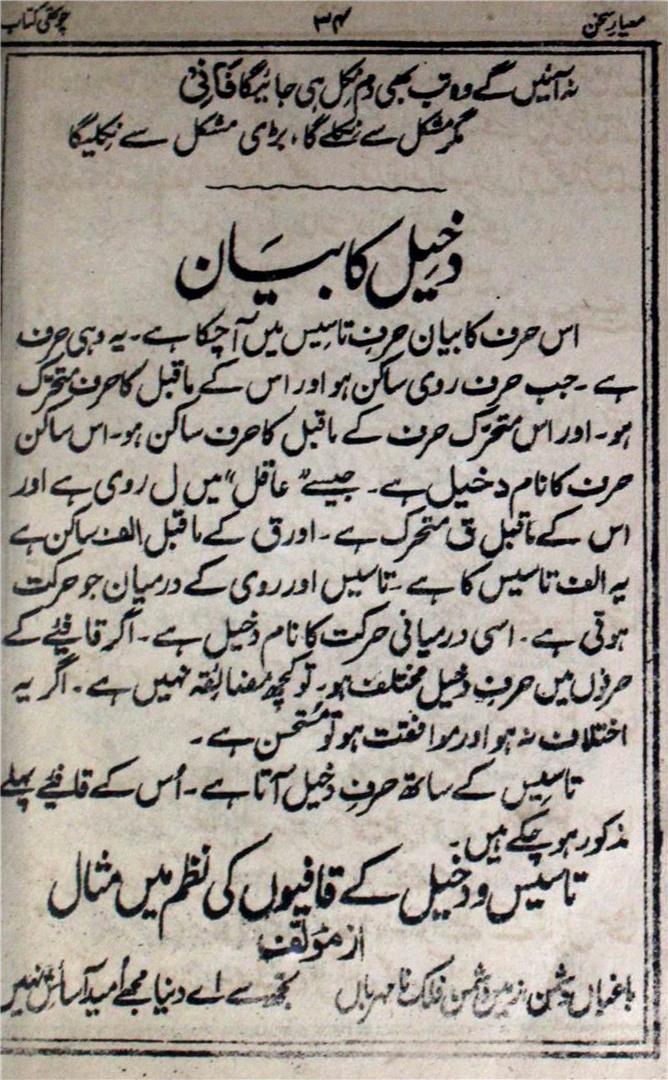 معیارِ سخن ۳۴ چوتھی کتاب
نہ آئیں گے وہ تب بھی دم نکل ہی جائیگا فانیؔ
مگر مشکل سے نکلے گا، بڑی مشکل سے نکلیگا
دخیل کا بیان
اس حرف کا بیان حرفِ تاسیس میں آ چکا ہے۔ یہ وہی حرف
ہے۔ جب حرف روی ساکن ہو اور اس کے ماقبل کا حرف متحرّک
ہو۔ اور اس متحرّک حرف کے ماقبل کا حرف ساکن ہو۔ اس ساکن
حرف کا نام دخیل ہے۔ جیسے "عاقل" میں ل روی ہے اور
اس کے ماقبل ق متحرک ہے۔ اور ق کے ماقبل الف ساکن ہے
یہ الف تاسیس کا ہے۔ تاسیس اور روی کے درمیان جو حرکت
ہوتی ہے۔ اسی درمیانی حرکت کا نام دخیل ہے۔ اگر قافیئے کے
حرفوں میں حرفِ دخیل مختلف ہو۔ تو کچھ مضائقہ نہیں ہے۔ اگر یہ
اختلاف نہ ہو اور موافقت ہو تو مُستحسن ہے۔
تاسیس کے ساتھ حرفِ دخیل آتا ہے۔ اُس کے قافیئے پہلے
مذکور ہو چکے ہیں۔
تاسیس و دخیل کے قافیوں کی نظم میں مثال
از مؤلّف
باغباں دشمن، زمیں دشمن فلک نامہرباں تجھ سے اے دنیا مجھے اُمیدِ آسائش نہیں